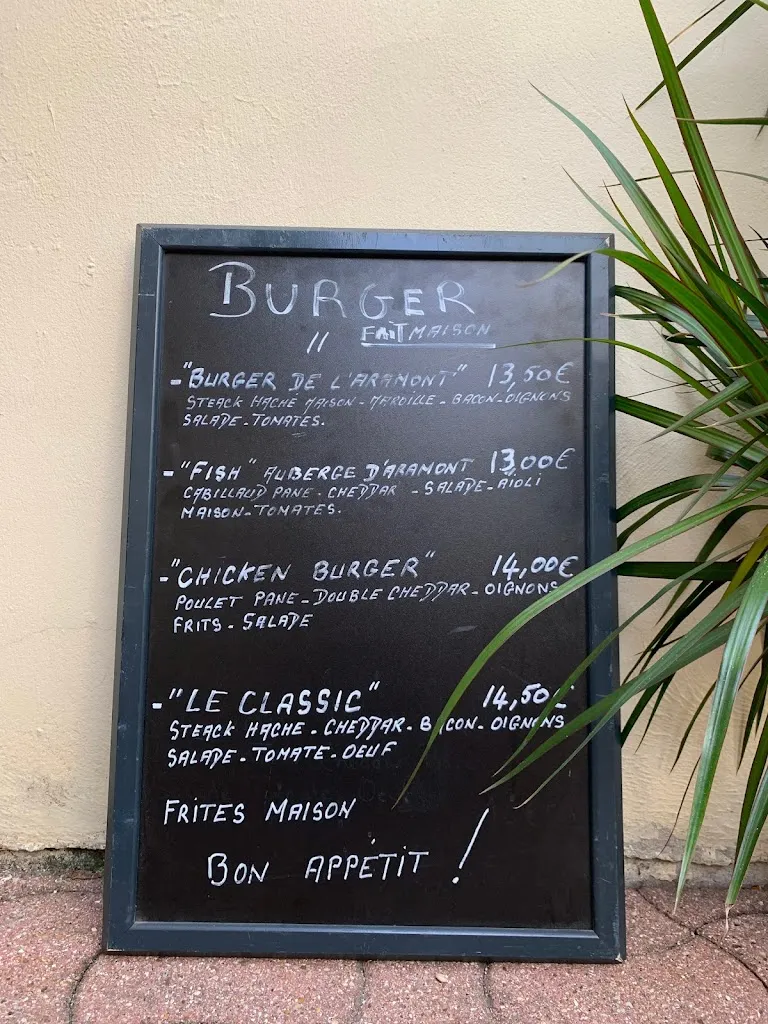 BURGER
" FAIT MAISON
-"BURGER DE L'ARAMONT" 13,50€
STEACK HACHÉ MAISON-MAROILLE-BACON-OIGNONS
SALADE-TOMATES.
-"FISH" AUBERGE D'ARAMONT 13,00€
CABILLAUD PANE-CHEDDAR-SALADE-AÏOLI
MAISON-TOMATES.
-"CHICKEN BURGER" 14,00€
POULET PANE-DOUBLE CHEDDAR-OIGNONS
FRITS-SALADE
-"LE CLASSIC" 14,50€
STEACK HACHE-CHEDDAR-BACON-OIGNONS
SALADE-TOMATE-OEUF
FRITES MAISON
BON APPÉTIT !